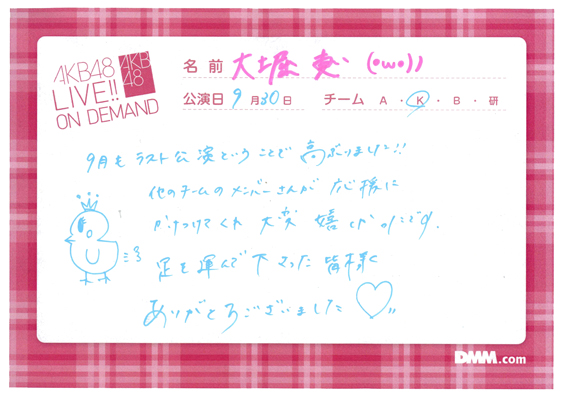 AKB48
LIVE!!
ON DEMAND
AKB
48
名前 大堀恵 (•ω•))
公演日 9月30日 チーム A・K・B・研
9月もラスト公演ということで高ぶりました!!
他のチームのメンバーさんが応援に
かけつけてくれ大変嬉しかったです。
足を運んで下さった皆様
ありがとうございました♡,,
DMM.com